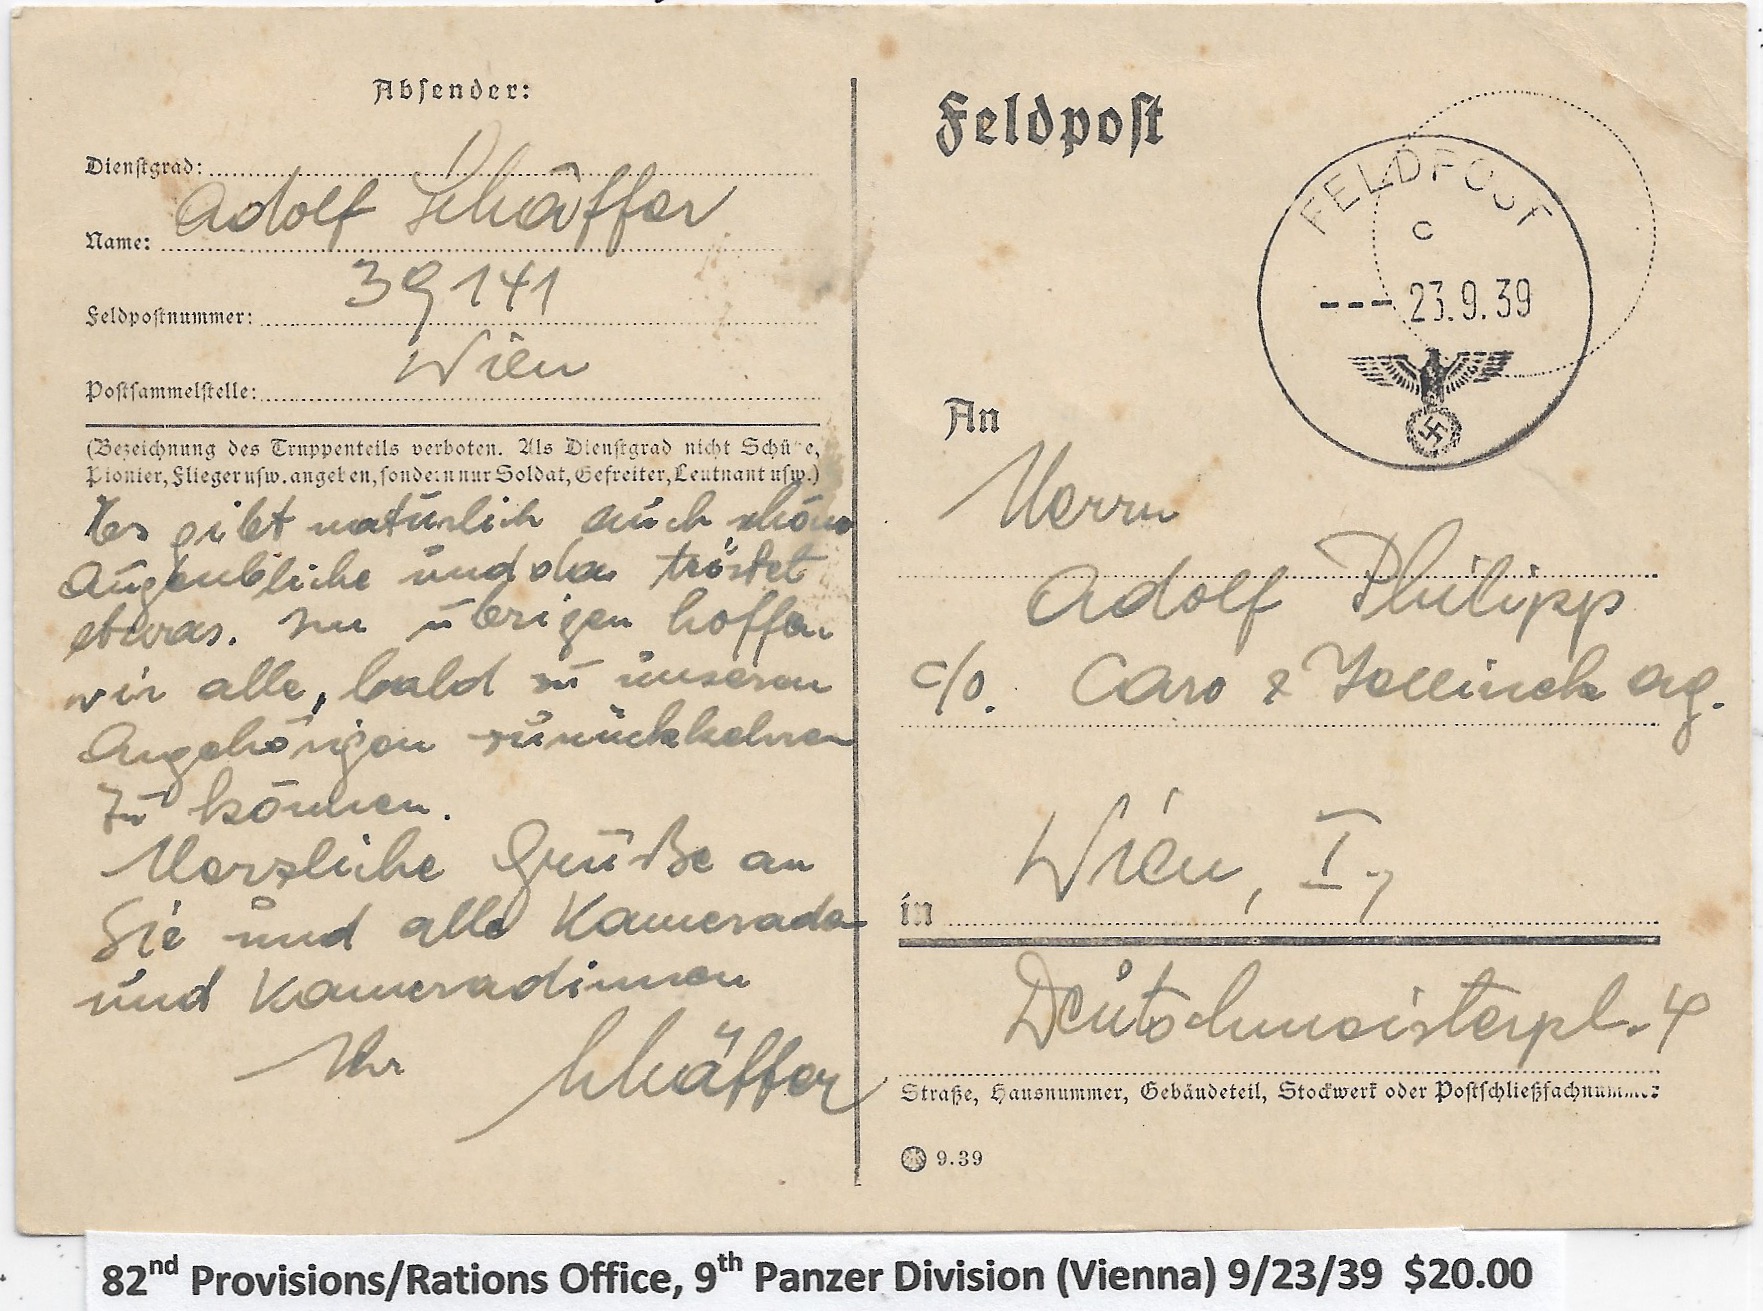 Absender:
Dienstgrad:
Name: Adolf Schäffer
Feldpostnummer: 39141
Postsammelstelle: Wien
(Bezeichnung des Truppenteils verboten. Als Dienstgrad nicht Schü e,
Pionier, Flieger usw. angeben, sondern nur Soldat, Gefreiter, Leutnant usw.)
Es gibt natürlich auch schöne
Augenblicke und das tröstet
etwas. Im übrigen hoffen
wir alle, bald zu unseren
Angehörigen zurückkehren
zu können.
Herzliche Grüße an
Sie und alle Kameraden
und Kameradinnen
Ihr Schäffer
Feldpost
FELDPOST
c
--- 23.9.39
An
Herrn
Adolf Philipp
c/o. Caro & Jellinek Ag.
in Wien, I.,
Deutschmeisterpl. 4
Straße, Hausnummer, Gebäudeteil, Stockwerk oder Postschließfachnummer
9.39
82nd Provisions/Rations Office, 9th Panzer Division (Vienna) 9/23/39 $20.00